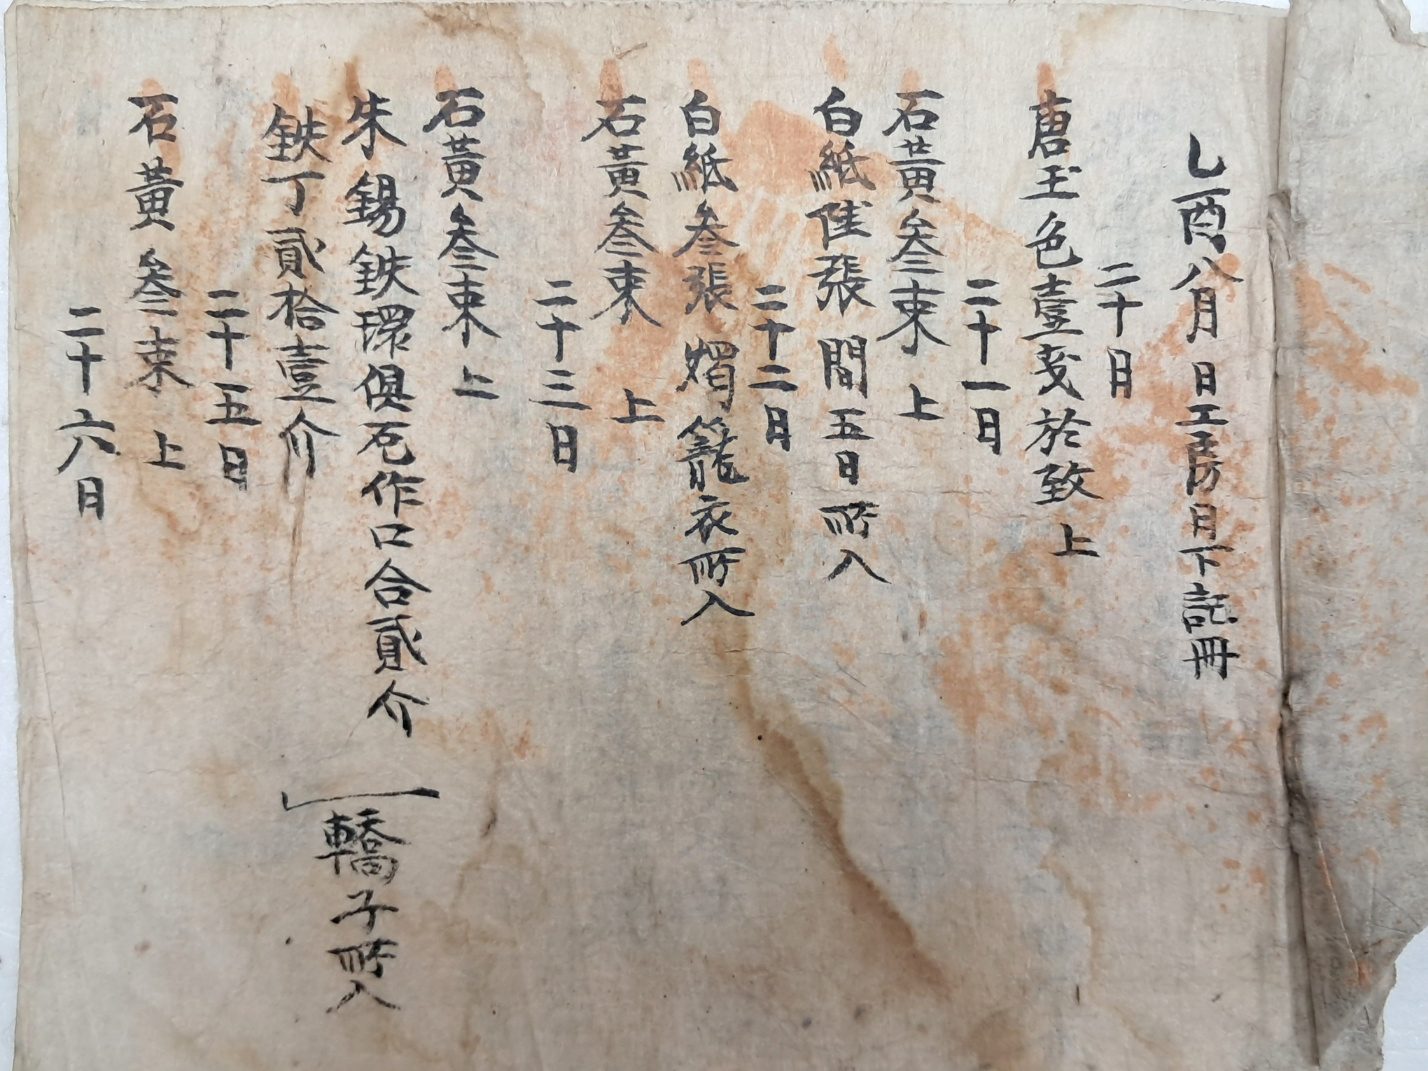 乙酉八月 日工房用下記冊
二十日
唐玉色壹戔於致 上
二十一日
石黃叄束 上
白紙陸張 間五日所入
二十二日
白紙叄張 燭籠衣所入
石黃叄束 上
二十三日
石黃叄束 上
朱錫鉄環俱瓦作口合貳介
鉄丁貳拾壹介
轎子所入
二十五日
石黃叄束 上
二十六日